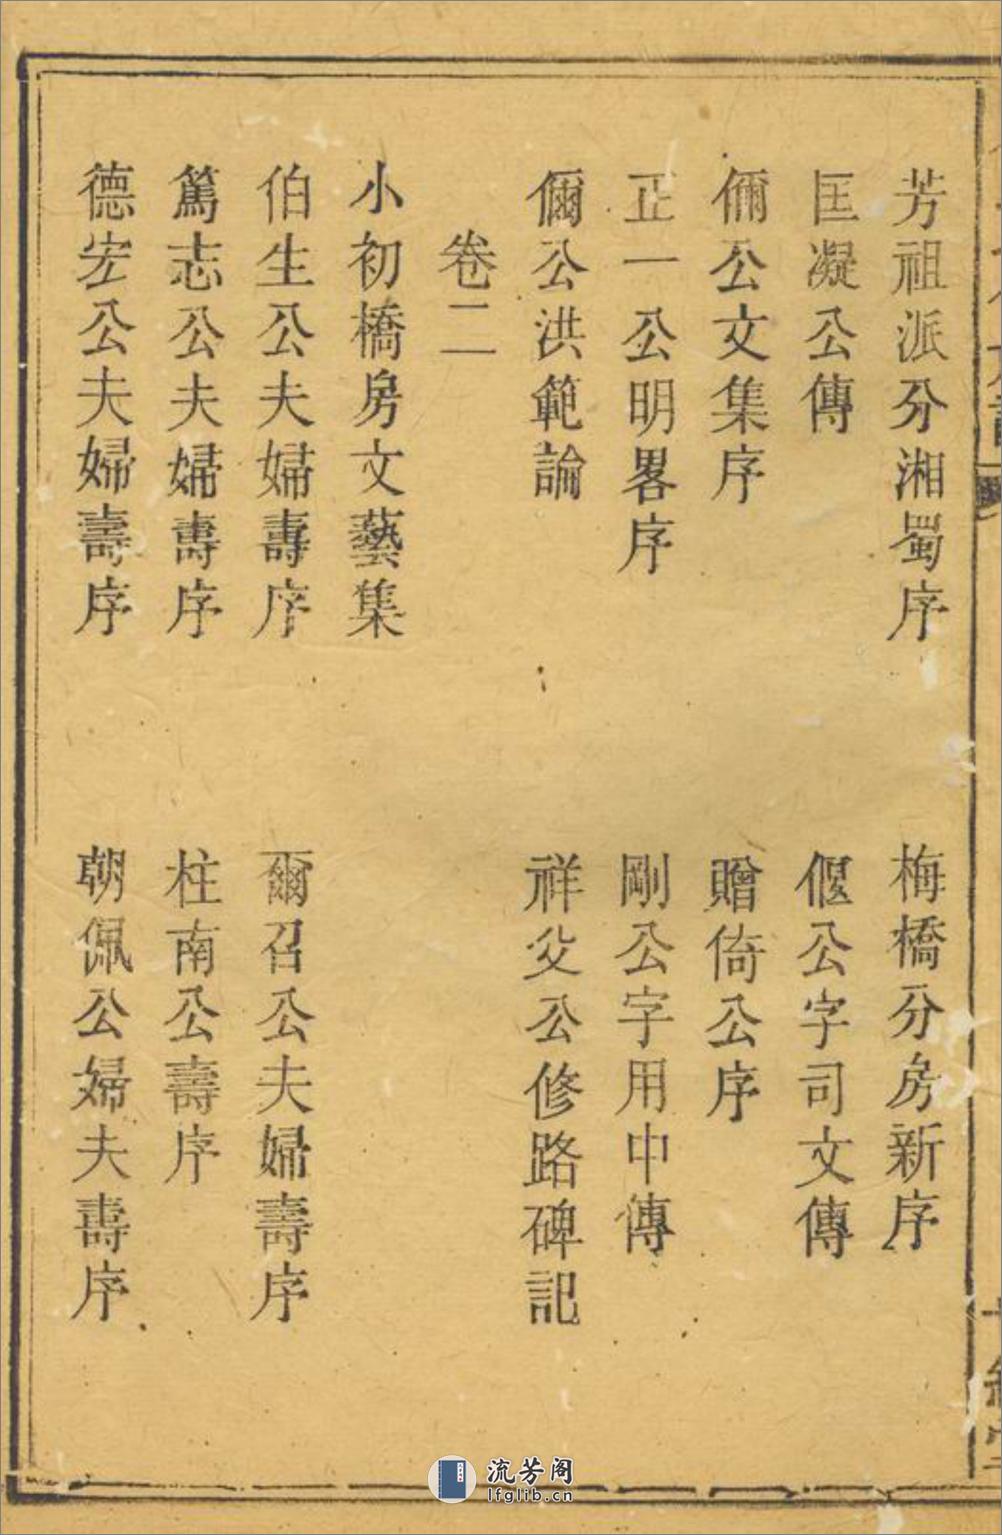 芳祖派分湘蜀序　梅橋分房新序
匡凝公傳　偃公字司文傳
儞公文集序　贈倚公序
正一公明畧序　剛公字用中傳
儞公洪範論　祥父公修路碑記
卷二
小初橋房文藝集
伯生公夫婦壽序　爾召公夫婦壽序
篤志公夫婦壽序　柱南公壽序
德宏公夫婦壽序　朝佩公婦夫壽序
流芳阁
lfglib.cn